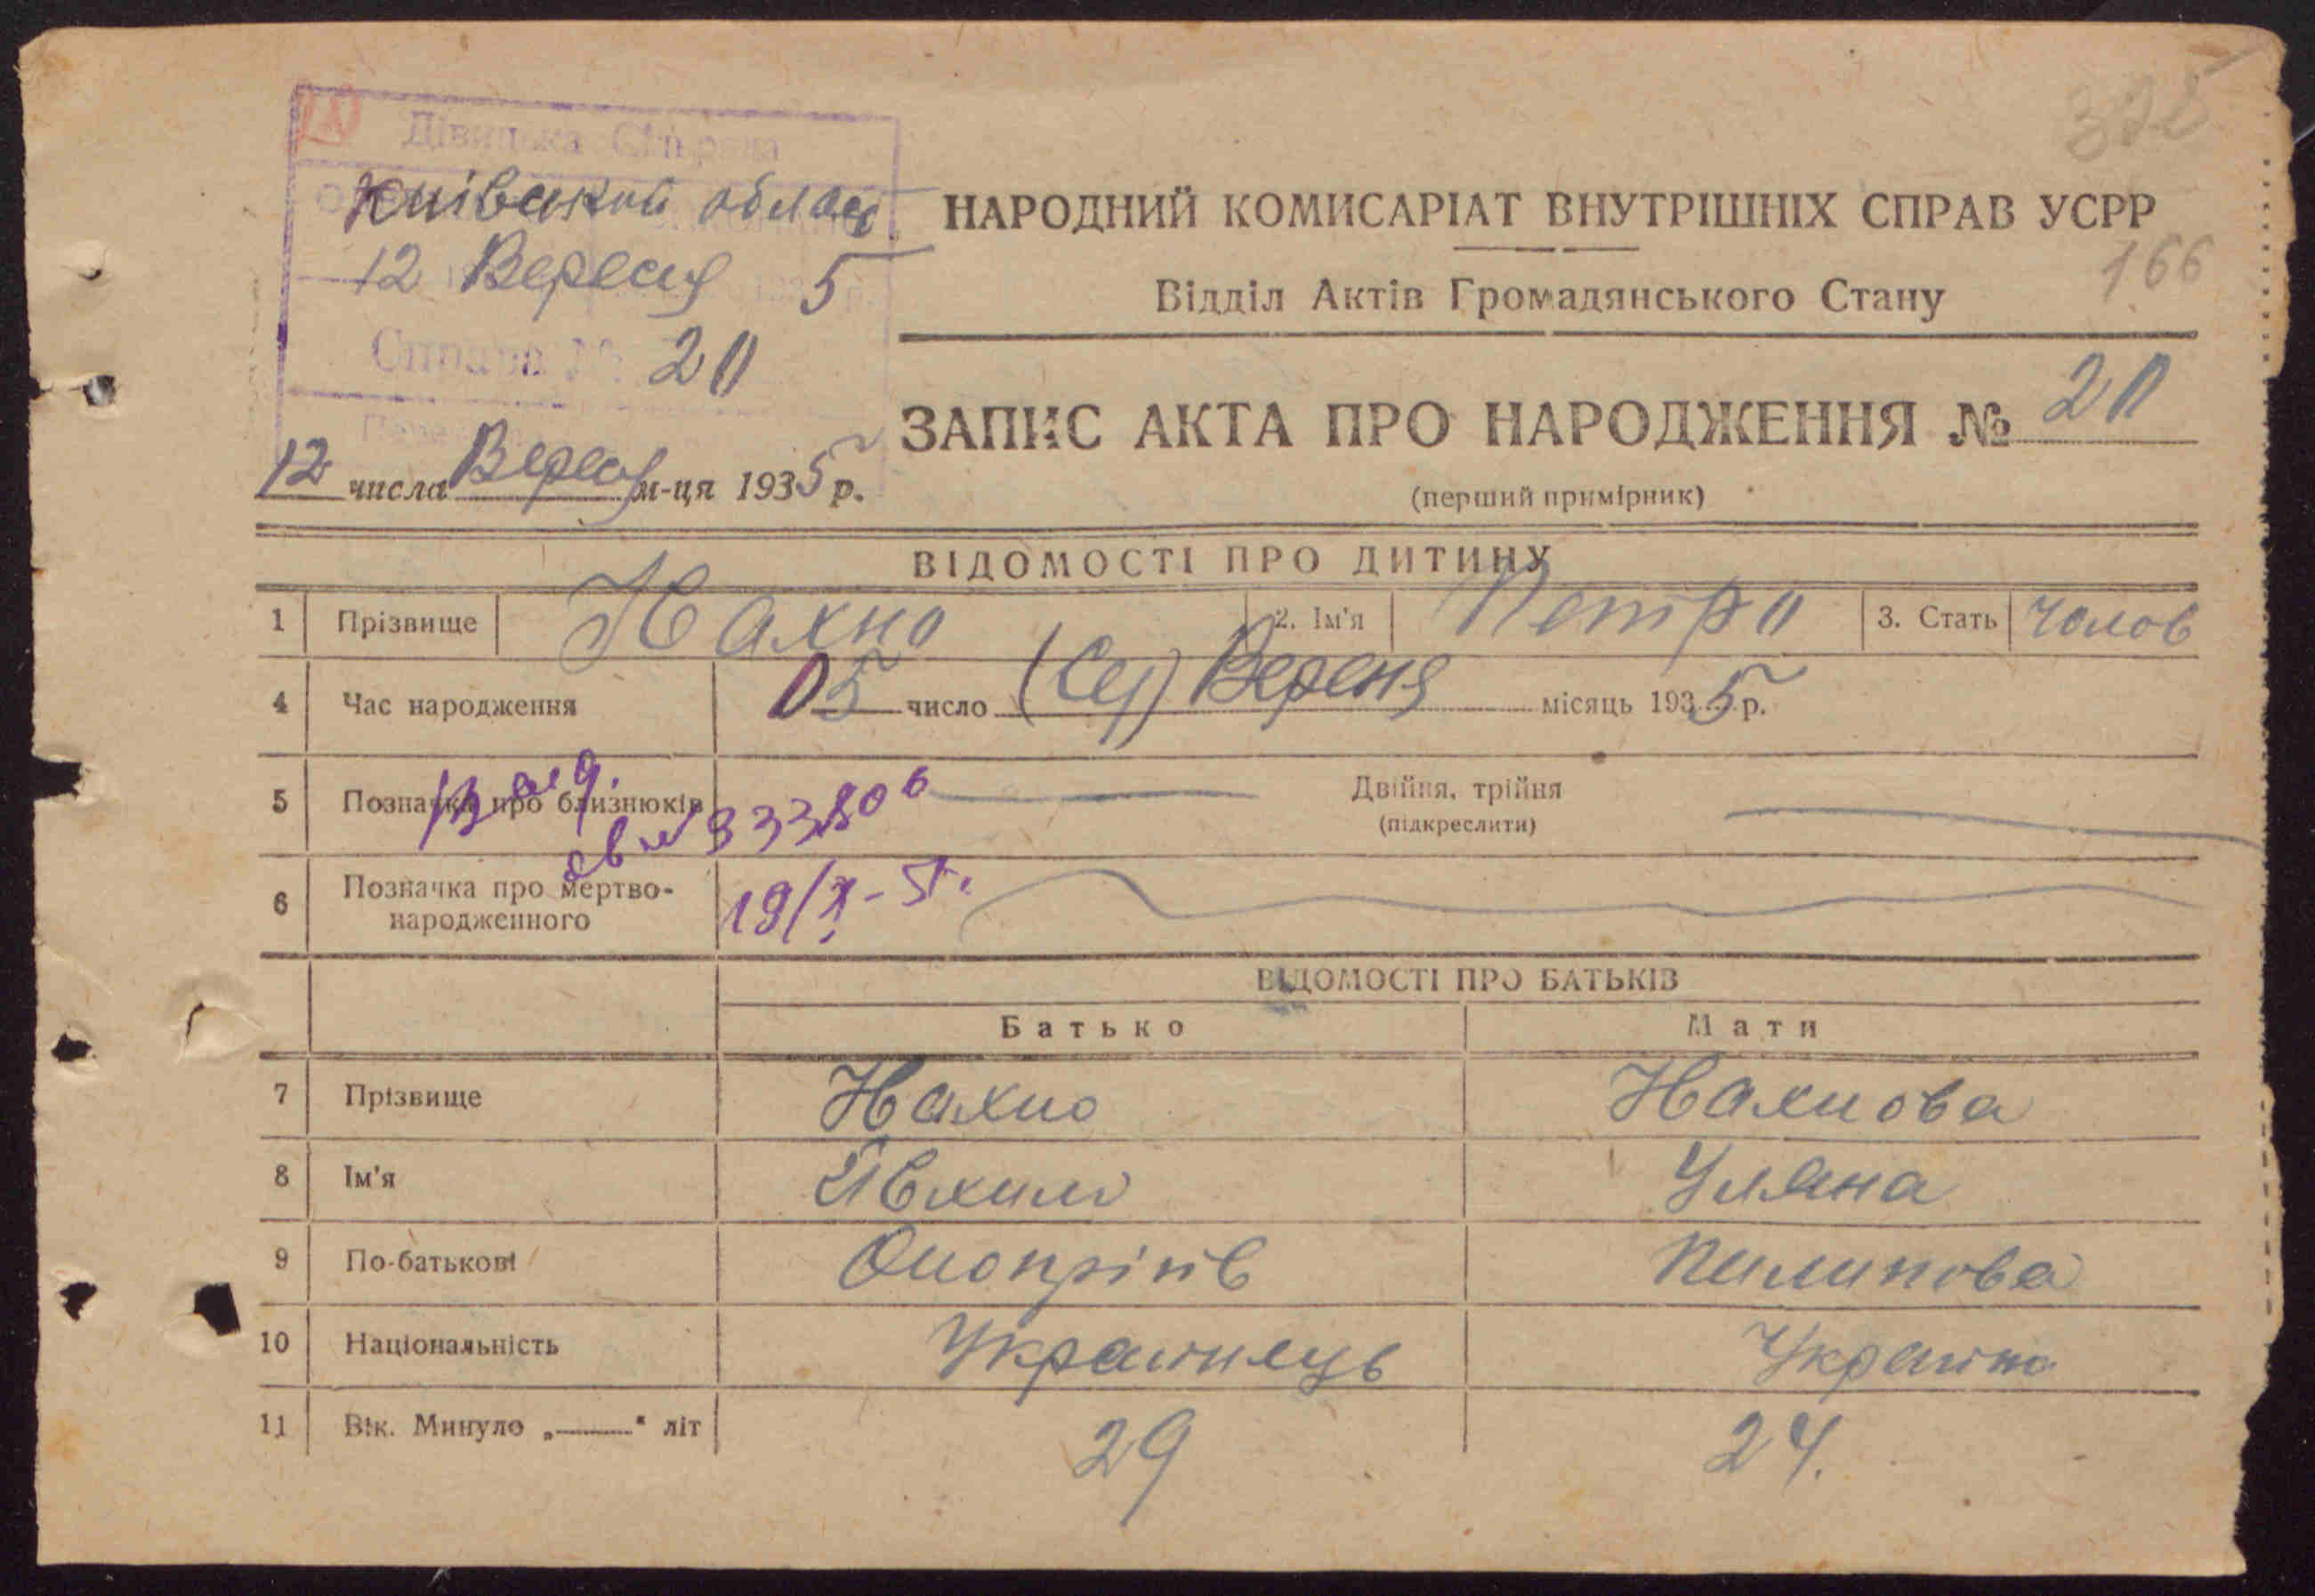 328
Дівицька Сільрада
Київської област
12 Вересня 5
Справа № 20
НАРОДНИЙ КОМИСАРІАТ ВНУТРІШНІХ СПРАВ УСРР
166
Відділ Актів Громадянського Стану
ЗАПИС АКТА ПРО НАРОДЖЕННЯ № 20
12 числа Вересня м-ця 1935 р.
(перший примірник)
ВІДОМОСТІ ПРО ДИТИНУ
1 Прізвище Нахно 2. Ім'я Петро 3. Стать чолов
4 Час народження 05 число Вересня місяць 1935 р.
5 Позначка про близнюків Двійня, трійня
(підкреслити)
333806
6 Позначка про мертво-
народженного
19/X-5
ВІДОМОСТІ ПРО БАТЬКІВ
Батько Мати
7 Прізвище Нахно Нахнова
8 Ім'я Явхим Уляна
9 По-батькові Онопріїв Пилипова
10 Національність Українець Українка
11 Вік. Минуло „——" літ 29 24.